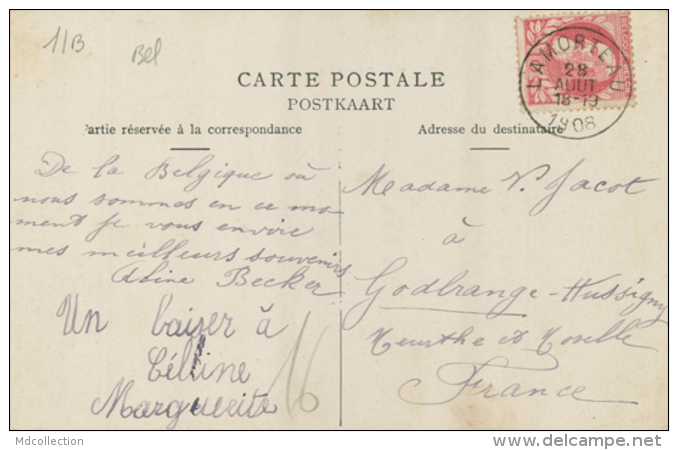 1/B
Bel
CARTE POSTALE
POSTKAART
Partie réservée à la correspondance
Adresse du destinataire
LAMORTEAU
28
AOUT
18-19
1908
De la Belgique où
nous sommes en ce mo-
ment je vous envoie
mes meilleurs souvenirs
Aline Becker
Un baiser à
Céline
Marguerite
16
Madame V. Jacot
à
Godbrange-Hussigny
Meurthe et Moselle
France
Mdcollection
www.delcampe.net